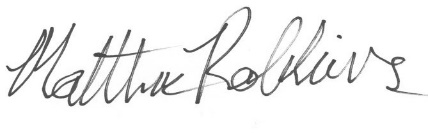 Matthew Robbins